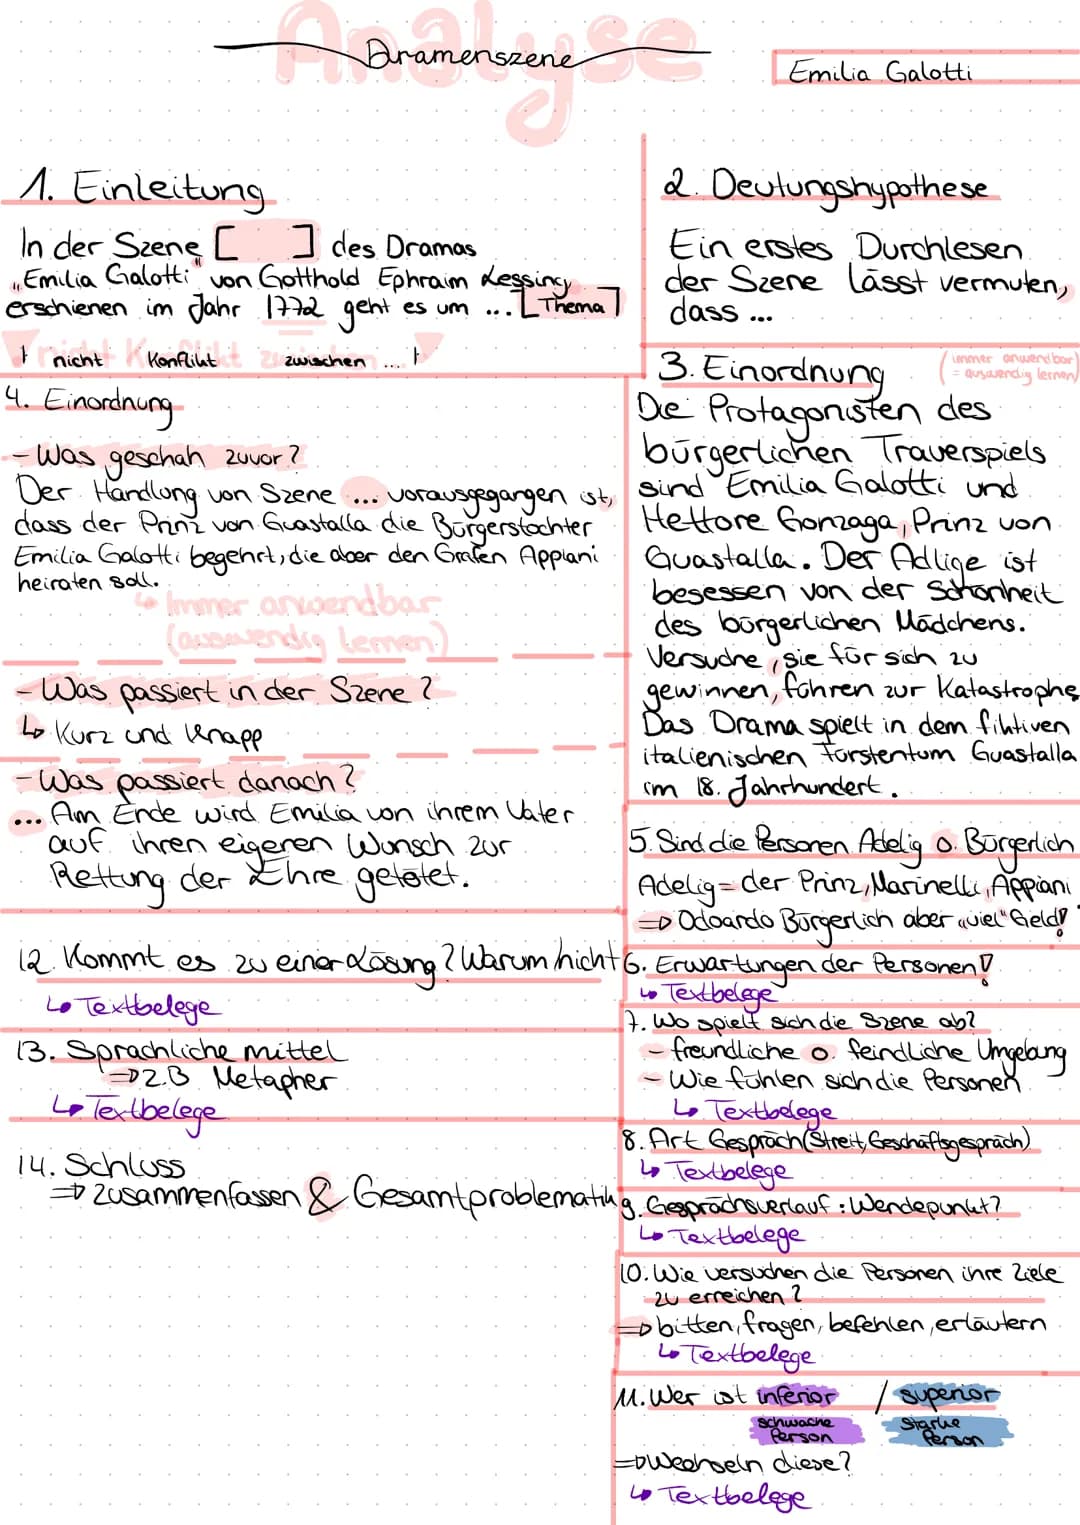 Analyse
Dramenszene
Emilia Galotti
1. Einleitung
In der Szene [ ] des Dramas
„Emilia Galotti" von Gotthold Ephraim Lessing,
erschienen im Jahr 1772 geht es um ... [Thema]
! nicht Konflikt zwischen ... !
2. Deutungshypothese
Ein erstes Durchlesen
der Szene lässt vermuten,
dass ...
3. Einordnung
(immer anwendbar
= auswendig lernen)
Die Protagonisten des
bürgerlichen Trauerspiels
sind Emilia Galotti und
Hettore Gonzaga, Prinz von
Guastalla. Der Adlige ist
besessen von der Schönheit
des bürgerlichen Mädchens.
Versuche, sie für sich zu
gewinnen, führen zur Katastrophe
Das Drama spielt in dem fiktiven
italienischen Fürstentum Guastalla
im 18. Jahrhundert.
4. Einordnung
- Was geschah zuvor?
Der Handlung von Szene ... vorausgegangen ist,
dass der Prinz von Guastalla die Bürgerstochter
Emilia Galotti begehrt, die aber den Grafen Appiani
heiraten soll.
↳ Immer anwendbar
(auswendig lernen)
- Was passiert in der Szene?
↳ Kurz und knapp
- Was passiert danach?
... Am Ende wird Emilia von ihrem Vater
auf ihren eigenen Wunsch zur
Rettung der Ehre getötet.
5. Sind die Personen Adelig o. Bürgerlich
Adelig = der Prinz, Marinelli, Appiani
⇒ Odoardo Bürgerlich aber „viel" Geld!
6. Erwartungen der Personen!
↳ Textbelege
7. Wo spielt sich die Szene ab?
- freundliche o. feindliche Umgebung
- Wie fühlen sich die Personen
↳ Textbelege
8. Art Gespräch (Streit, Geschäftsgespräch)
↳ Textbelege
9. Gesprächsverlauf: Wendepunkt?
↳ Textbelege
10. Wie versuchen die Personen ihre Ziele
zu erreichen?
⇒ bitten, fragen, befehlen, erläutern
↳ Textbelege
11. Wer ist inferior / superior
schwache Person
starke Person
⇒ Wechseln diese?
↳ Textbelege
12. Kommt es zu einer Lösung? Warum/nicht
↳ Textbelege
13. Sprachliche mittel
⇒ z.B Metapher
↳ Textbelege
14. Schluss
⇒ zusammenfassen & Gesamtproblematik